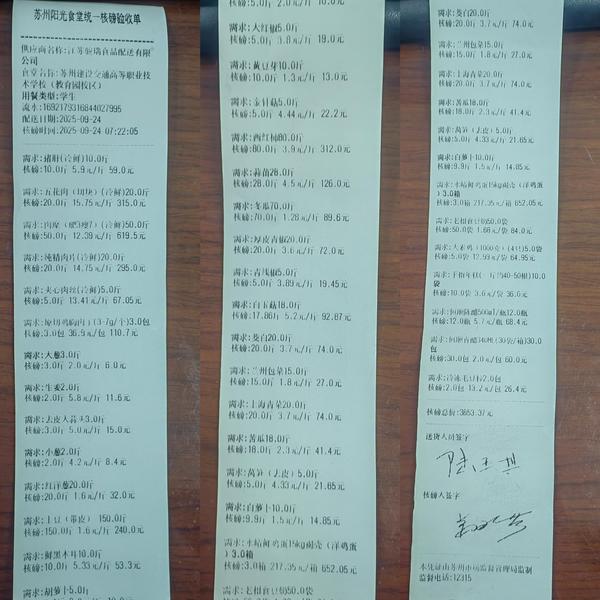 苏州阳光食堂统一核磅验收单
供应商名称:江苏骏瑞食品配送有限
公司
食堂名称:苏州建设交通高等职业技
术学校（教育园校区）
用餐类型:学生
流水:1692179316844027995
配送日期:2025-09-24
核磅时间:2025-09-24 07:22:05
需求:猪肝(冷鲜)10.0斤
核磅:10.0斤 5.9元/斤 59.0元
需求:五花肉（切块）(冷鲜)20.0斤
核磅:20.0斤 15.75元/斤 315.0元
需求:肉糜（肥3瘦7）(冷鲜)50.0斤
核磅:50.0斤 12.39元/斤 619.5元
需求:纯精肉片(冷鲜)20.0斤
核磅:20.0斤 14.75元/斤 295.0元
需求:夹心肉丝(冷鲜)5.0斤
核磅:5.0斤 13.41元/斤 67.05元
核磅:3.0包 36.9元/包 110.7元
需求:大葱3.0斤
核磅:3.0斤 2.0元/斤 6.0元
需求:生姜2.0斤
核磅:2.0斤 5.8元/斤 11.6元
需求:去皮大蒜头3.0斤
核磅:3.0斤 5.0元/斤 15.0元
需求:小葱2.0斤
核磅:2.0斤 4.2元/斤 8.4元
需求:红洋葱20.0斤
核磅:20.0斤 1.6元/斤 32.0元
需求:土豆（带皮）150.0斤
核磅:150.0斤 1.6元/斤 240.0元
需求:鲜黑木耳10.0斤
核磅:10.0斤 5.33元/斤 53.3元
需求:胡萝卜5.0斤
核磅:5.0斤 2.0元/斤 10.0元
需求:大红椒5.0斤
核磅:5.0斤 3.8元/斤 19.0元
需求:黄豆芽10.0斤
核磅:10.0斤 1.3元/斤 13.0元
需求:金针菇5.0斤
核磅:5.0斤 4.44元/斤 22.2元
需求:西红柿80.0斤
核磅:80.0斤 3.9元/斤 312.0元
需求:蒜苗28.0斤
核磅:28.0斤 4.5元/斤 126.0元
需求:冬瓜70.0斤
核磅:70.0斤 1.28元/斤 89.6元
需求:厚皮青椒20.0斤
核磅:20.0斤 3.6元/斤 72.0元
需求:青线椒5.0斤
核磅:5.0斤 3.89元/斤 19.45元
需求:白玉菇18.0斤
核磅:17.86斤 5.2元/斤 92.87元
需求:茭白20.0斤
核磅:20.0斤 3.7元/斤 74.0元
需求:兰州包菜15.0斤
核磅:15.0斤 1.8元/斤 27.0元
需求:上海青菜20.0斤
核磅:20.0斤 3.7元/斤 74.0元
需求:苦瓜18.0斤
核磅:18.0斤 2.3元/斤 41.4元
需求:莴笋（去皮）5.0斤
核磅:5.0斤 4.33元/斤 21.65元
需求:白萝卜10.0斤
核磅:9.9斤 1.5元/斤 14.85元
需求:水站鲜鸡蛋15kg褐壳（洋鸡蛋
）3.0箱
核磅:3.0箱 217.35元/箱 652.05元
需求:茭白20.0斤
核磅:20.0斤 3.7元/斤 74.0元
需求:兰州包菜15.0斤
核磅:15.0斤 1.8元/斤 27.0元
需求:上海青菜20.0斤
核磅:20.0斤 3.7元/斤 74.0元
需求:苦瓜18.0斤
核磅:18.0斤 2.3元/斤 41.4元
需求:莴笋（去皮）5.0斤
核磅:5.0斤 4.33元/斤 21.65元
需求:白萝卜10.0斤
核磅:9.9斤 1.5元/斤 14.85元
需求:水站鲜鸡蛋15kg褐壳（洋鸡蛋
）3.0箱
核磅:3.0箱 217.35元/箱 652.05元
核磅:50.0袋 1.68元/袋 84.0元
需求:大素鸡（1000克）(4只)5.0袋
核磅:5.0袋 12.99元/袋 64.95元
袋
核磅:10.0袋 3.6元/袋 36.0元
需求:恒顺陈醋500ml/瓶12.0瓶
核磅:12.0瓶 5.7元/瓶 68.4元
包
核磅:30.0包 2.0元/包 60.0元
需求:冷冻毛豆籽2.0包
核磅:2.0包 13.2元/包 26.4元
核磅总额:3653.37元
送货人员签字
核磅人签字
本凭证由苏州市场监督管理局监制
监督电话:12315